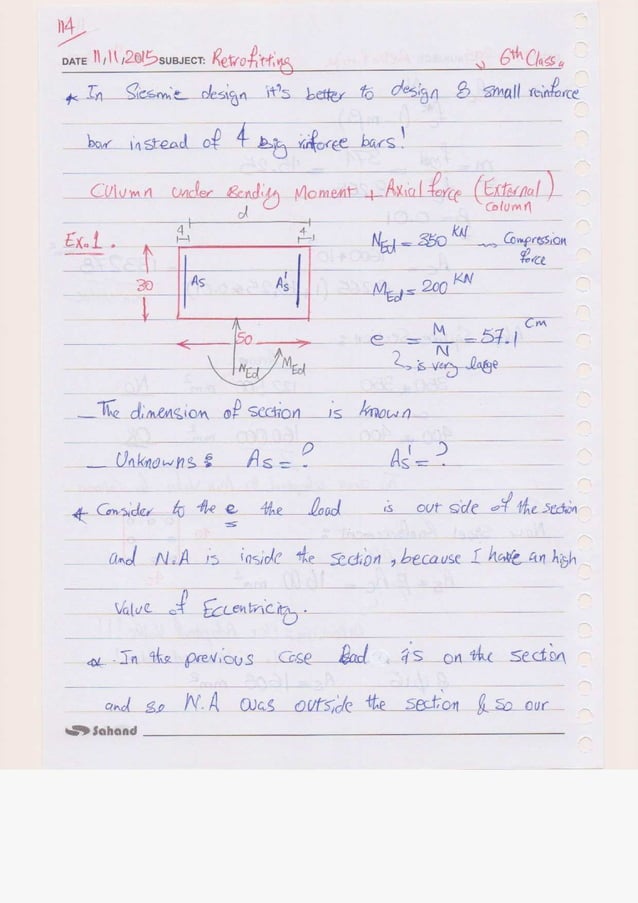 114
DATE 11,11,2015 SUBJECT: Retrofitting 6th Class
* In Siesmic design it's better to design 8 small reinforce
bar instead of 4 big rinforce bars!
Culumn under Bending Moment + Axial force (External)
Column
d
Ex.1. 4 4 NEd = 350 KN Compression
force
30 As As' MEd = 200 KN
50 e = M/N = 57.1 Cm
NEd MEd is very large
_ The dimension of section is known
_ Unknowns : As = ? As' = ?
* Consider to the e the load is out side of the section
and N.A is inside the section, because I have an high
value of Eccentricity.
* In the previous case load is on the section
and so N.A was outside the section & so our
Sahand